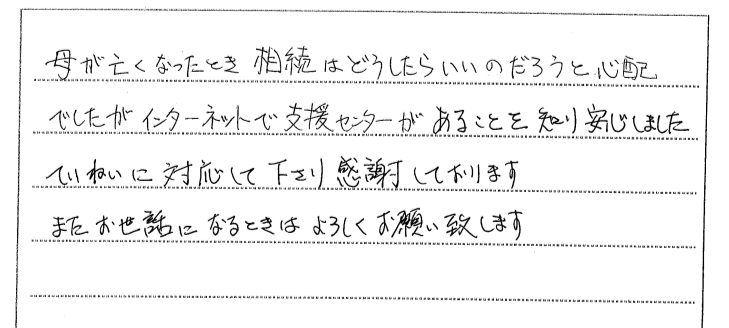 母が亡くなったとき 相続はどうしたらいいのだろうと心配
でしたがインターネットで支援センターがあることを知り安じました
ていねいに対応して下さり感謝しております
またお世話になるときはよろしくお願い致します